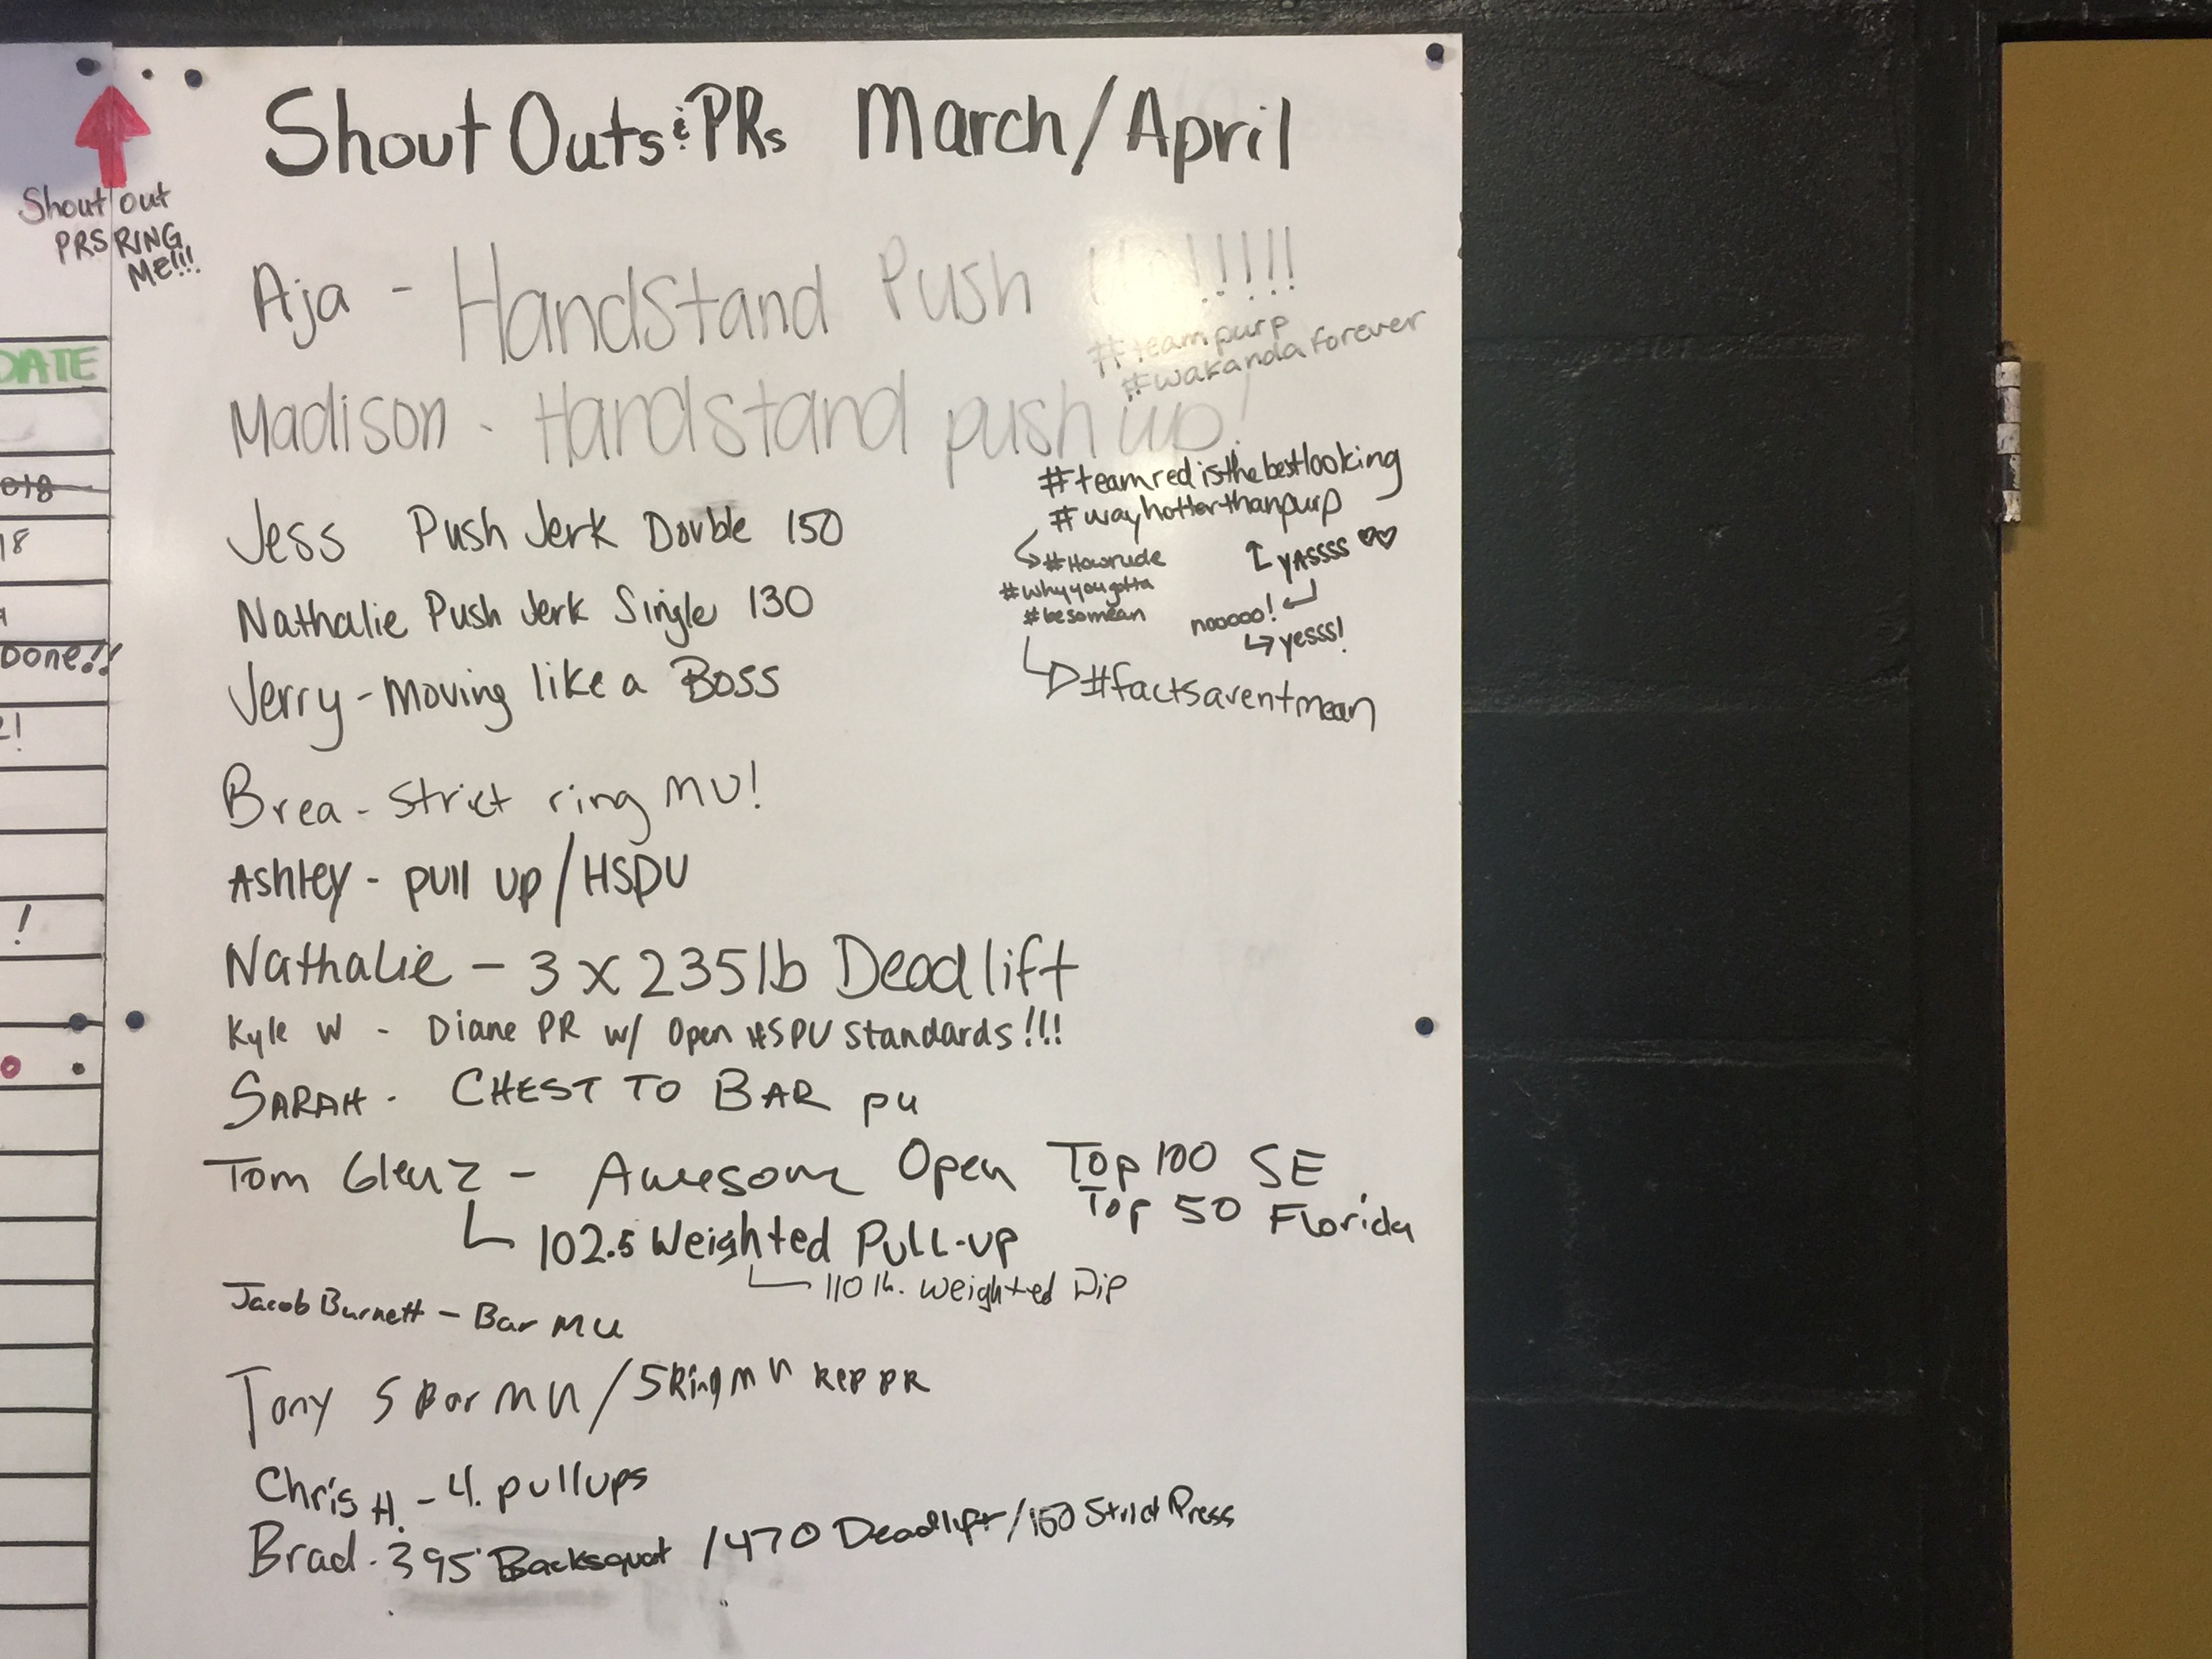 Shout Outs & PRs March/April
Shout out
PRS RING
ME!!!
Aja - Handstand Push Up!!!!!
#teampurp
#wakandaforever
Madison - Handstand push up!
#teamredisthebestlooking
#wayhotterthanpurp
#Howrude
#whyyougotta
#besomean
YASSSS ♡♡
nooooo!
yesss!
#factsarentmean
Jess Push Jerk Double 150
Nathalie Push Jerk Single 130
Jerry - Moving like a Boss
Brea - Strict ring MU!
Ashley - pull up / HSPU
Nathalie - 3 x 235 lb Deadlift
Kyle W - Diane PR w/ Open HSPU Standards!!!
SARAH - CHEST TO BAR pu
Tom Glenz - Awesome Open Top 100 SE
Top 50 Florida
102.5 Weighted Pull-up
110 lb. Weighted Dip
Jacob Burnett - Bar MU
Tony 5 Bar MU / 5 Ring MU Rep PR
Chris H. - 4. pullups
Brad - 395 Backsquat / 470 Deadlift / 150 Strict Press
DATE
2018
18
Done!!
!
!